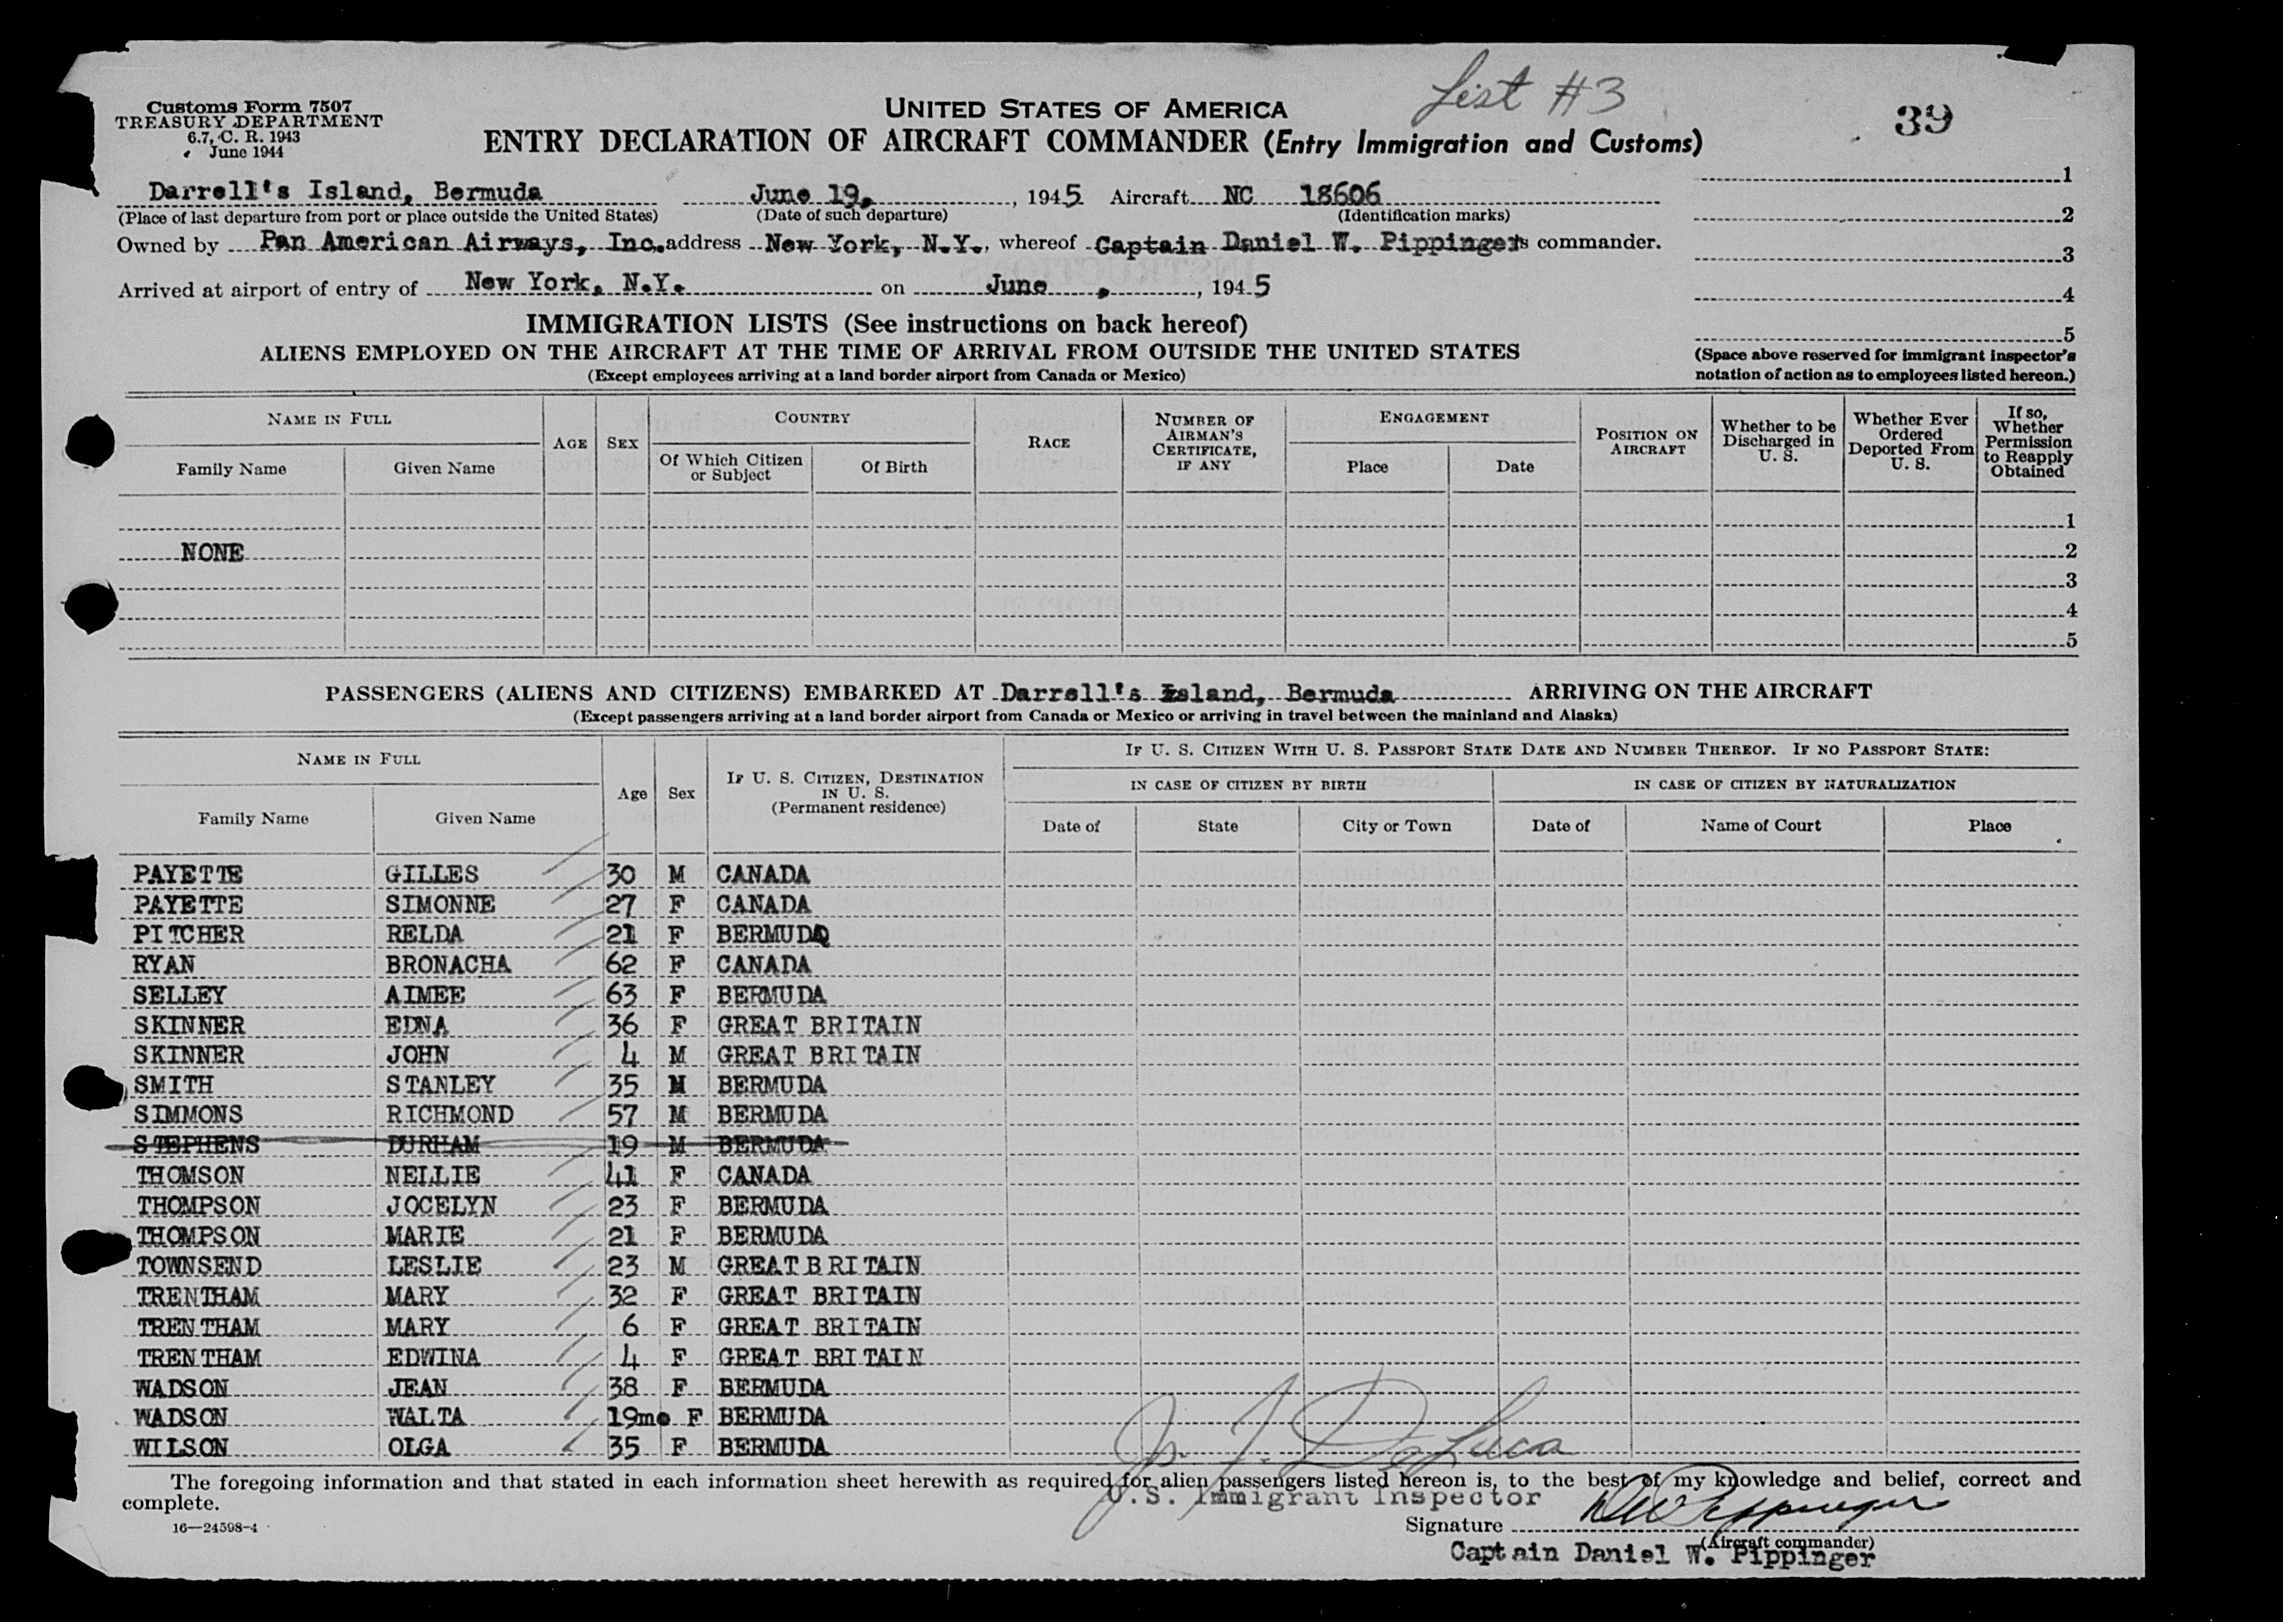 List #3
39
Customs Form 7507
TREASURY DEPARTMENT
6.7, C. R. 1943
June 1944
UNITED STATES OF AMERICA
ENTRY DECLARATION OF AIRCRAFT COMMANDER (Entry Immigration and Customs)
Darrell's Island, Bermuda June 19, , 1945 Aircraft NC 18606
(Place of last departure from port or place outside the United States) (Date of such departure) (Identification marks)
Owned by Pan American Airways, Inc. address New York, N.Y., whereof Captain Daniel W. Pippinger is commander.
Arrived at airport of entry of New York, N.Y. on June , , 1945
1
2
3
4
5
(Space above reserved for immigrant inspector's notation of action as to employees listed hereon.)
IMMIGRATION LISTS (See instructions on back hereof)
ALIENS EMPLOYED ON THE AIRCRAFT AT THE TIME OF ARRIVAL FROM OUTSIDE THE UNITED STATES
(Except employees arriving at a land border airport from Canada or Mexico)
NAME IN FULL AGE SEX COUNTRY RACE NUMBER OF AIRMAN'S CERTIFICATE, IF ANY ENGAGEMENT POSITION ON AIRCRAFT Whether to be Discharged in U. S. Whether Ever Ordered Deported From U. S. If so, Whether Permission to Reapply Obtained
Family Name Given Name Of Which Citizen or Subject Of Birth Place Date
1
NONE 2
3
4
5
PASSENGERS (ALIENS AND CITIZENS) EMBARKED AT Darrell's Island, Bermuda ARRIVING ON THE AIRCRAFT
(Except passengers arriving at a land border airport from Canada or Mexico or arriving in travel between the mainland and Alaska)
NAME IN FULL Age Sex IF U. S. CITIZEN, DESTINATION IN U. S. (Permanent residence) IF U. S. CITIZEN WITH U. S. PASSPORT STATE DATE AND NUMBER THEREOF. IF NO PASSPORT STATE:
IN CASE OF CITIZEN BY BIRTH IN CASE OF CITIZEN BY NATURALIZATION
Family Name Given Name Date of State City or Town Date of Name of Court Place
PAYETTE GILLES 30 M CANADA
PAYETTE SIMONNE 27 F CANADA
PITCHER RELDA 21 F BERMUDA
RYAN BRONACHA 62 F CANADA
SELLEY AIMEE 63 F BERMUDA
SKINNER EDNA 36 F GREAT BRITAIN
SKINNER JOHN 4 M GREAT BRITAIN
SMITH STANLEY 35 M BERMUDA
SIMMONS RICHMOND 57 M BERMUDA
STEPHENS DURHAM 19 M BERMUDA
THOMSON NELLIE 41 F CANADA
THOMPSON JOCELYN 23 F BERMUDA
THOMPSON MARIE 21 F BERMUDA
TOWNSEND LESLIE 23 M GREAT BRITAIN
TRENTHAM MARY 32 F GREAT BRITAIN
TRENTHAM MARY 6 F GREAT BRITAIN
TRENTHAM EDWINA 4 F GREAT BRITAIN
WADSON JEAN 38 F BERMUDA
WADSON WALTA 19mo F BERMUDA
WILSON OLGA 35 F BERMUDA
The foregoing information and that stated in each information sheet herewith as required for alien passengers listed hereon is, to the best of my knowledge and belief, correct and
complete.
U.S. Immigrant Inspector
16—24598-4
Signature DW Pippinger
(Aircraft commander)
Captain Daniel W. Pippinger